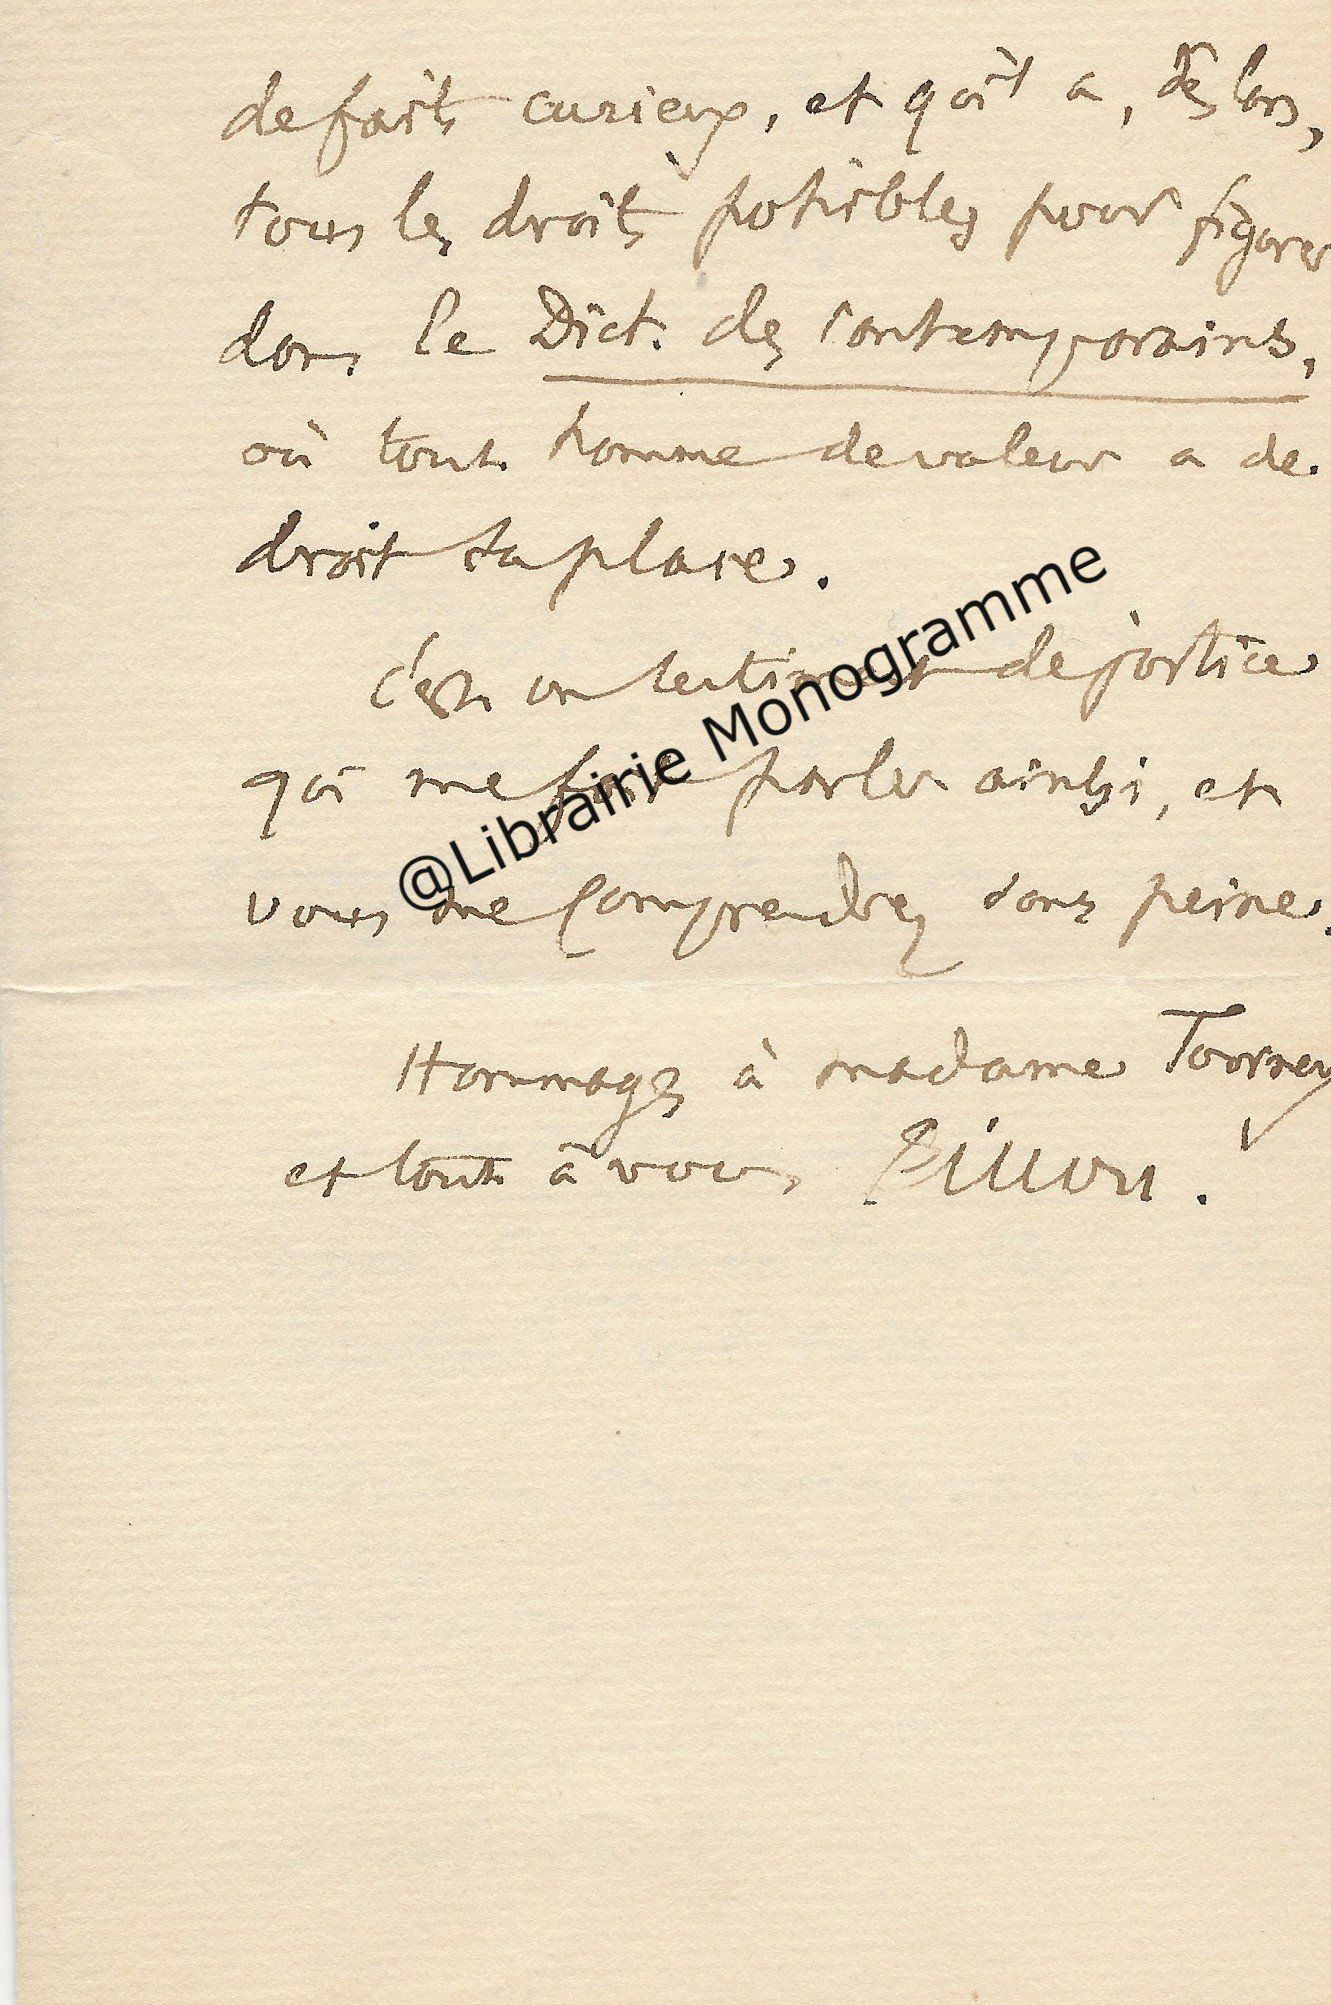 de faits curieux, et qu'il a, dès lors,
tous les droits possibles pour figurer
dans le Dict. des Contemporains,
où tout homme de valeur a de
droit sa place.
C'est un sentiment de justice
qui me fait parler ainsi, et
vous me comprendrez sans peine.
@Librairie Monogramme
Hommages à madame Tourneux
et tout à vous